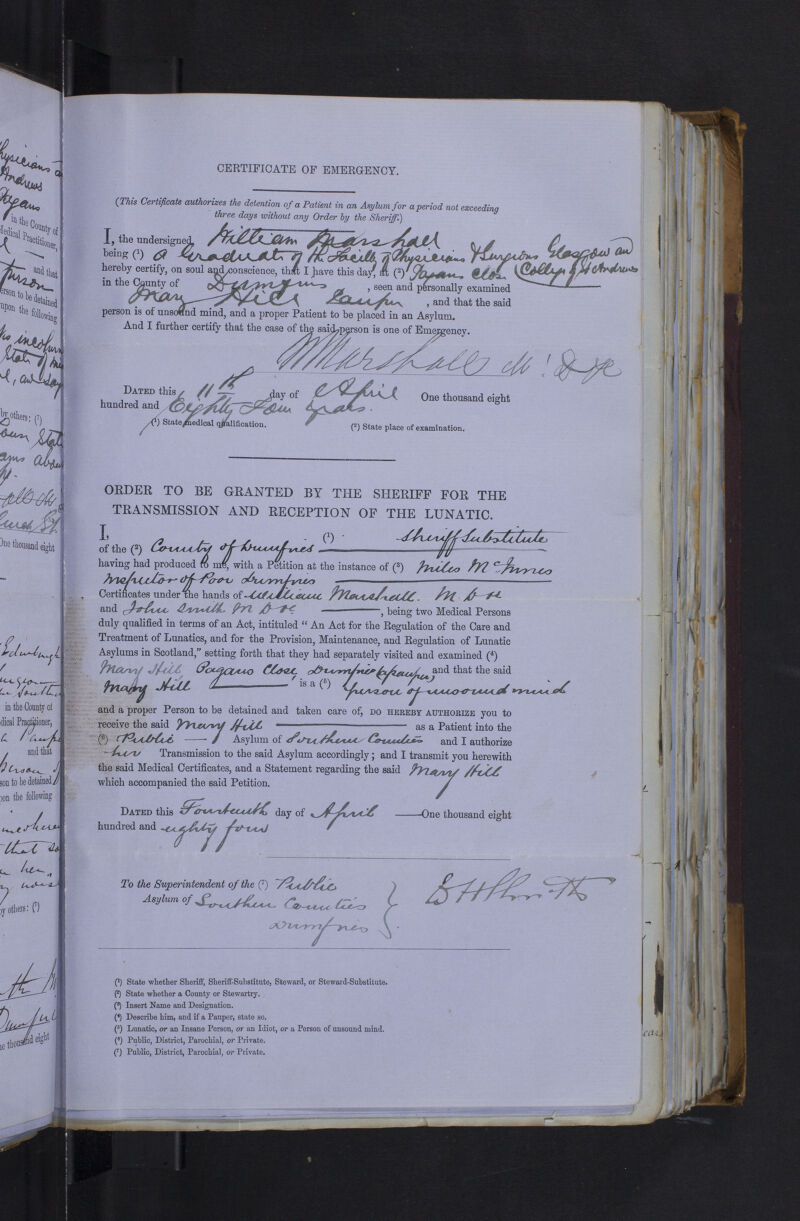 hysicians a
Andrews
Pagans
in the County of
Medical Practitioner,
and that
person
erson to be detained
upon the following
State of
by others: (7)
One thousand eight
Edinburgh
in the County of
dical Practitioner,
and that
son to be detained
on the following
that so
her,
y others: (7)
e thousand eight
CERTIFICATE OF EMERGENCY.
(This Certificate authorizes the detention of a Patient in an Asylum for a period not exceeding
three days without any Order by the Sheriff.)
I, the undersigned, William Marshall
being (1) a Graduate of the Faculty of Physicians & Surgeons Glasgow an
hereby certify, on soul and conscience, that I have this day, at (2) Pagans Close (College of St Andrews
in the County of Dumfries, seen and personally examined
Mary Hill Pauper, and that the said
person is of unsound mind, and a proper Patient to be placed in an Asylum.
And I further certify that the case of the said person is one of Emergency.
WMarshall M.D
DATED this 11th day of April One thousand eight
hundred and Eighty Four years.
(1) State medical qualification. (2) State place of examination.
ORDER TO BE GRANTED BY THE SHERIFF FOR THE
TRANSMISSION AND RECEPTION OF THE LUNATIC.
I, (1) Sheriff Substitute
of the (2) County of Dumfries
having had produced to me, with a Petition at the instance of (3) Miles McInnes
Inspector of Poor Dumfries
Certificates under the hands of William Marshall. M. D &c
and John Smith M D &c, being two Medical Persons
duly qualified in terms of an Act, intituled “ An Act for the Regulation of the Care and
Treatment of Lunatics, and for the Provision, Maintenance, and Regulation of Lunatic
Asylums in Scotland,” setting forth that they had separately visited and examined (4)
Mary Hill Pagans Close, Dumfries (pauper) and that the said
Mary Hill is a (5) person of unsound mind
and a proper Person to be detained and taken care of, DO HEREBY AUTHORIZE you to
receive the said Mary Hill as a Patient into the
(6) Public Asylum of Southern Counties and I authorize
her Transmission to the said Asylum accordingly; and I transmit you herewith
the said Medical Certificates, and a Statement regarding the said Mary Hill
which accompanied the said Petition.
DATED this Fourteenth day of April One thousand eight
hundred and eighty four
To the Superintendent of the (7) Public
Asylum of Southern Counties
Dumfries
(1) State whether Sheriff, Sheriff-Substitute, Steward, or Steward-Substitute.
(2) State whether a County or Stewartry.
(3) Insert Name and Designation.
(4) Describe him, and if a Pauper, state so.
(5) Lunatic, or an Insane Person, or an Idiot, or a Person of unsound mind.
(6) Public, District, Parochial, or Private.
(7) Public, District, Parochial, or Private.